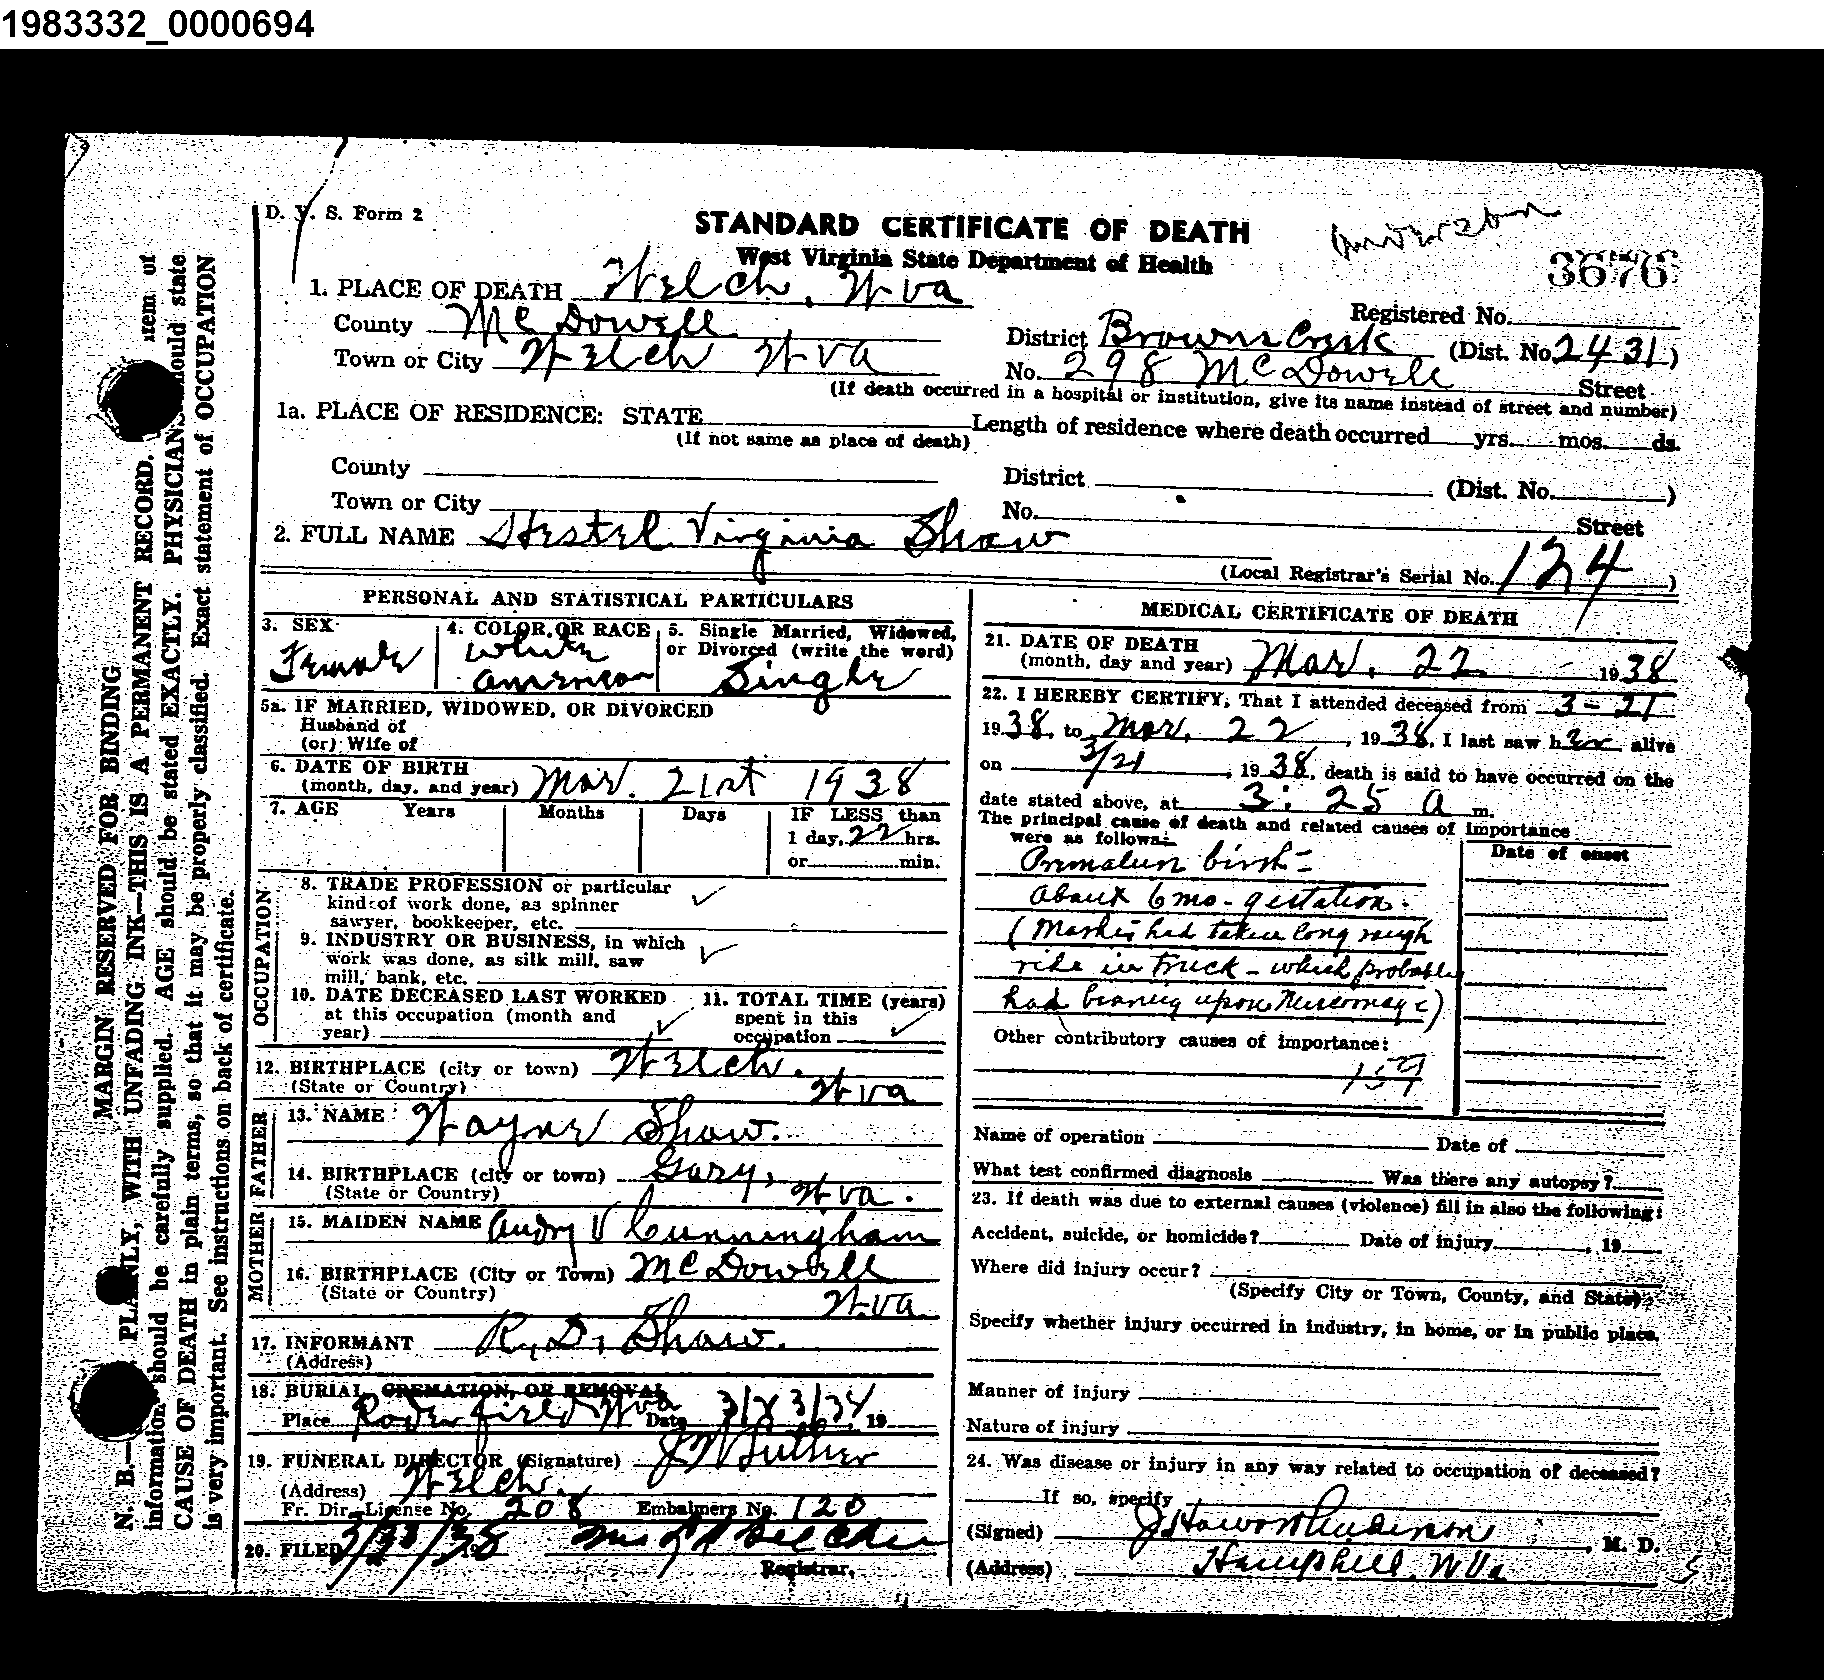 1983332_0000694
D. V. S. Form 2
STANDARD CERTIFICATE OF DEATH
Anderson
West Virginia State Department of Health
3676
1. PLACE OF DEATH Welch, W va
Registered No.
County McDowell
District Browns Creek (Dist. No. 2431)
Town or City Welch W va
No. 298 McDowell Street
(If death occurred in a hospital or institution, give its name instead of street and number)
1a. PLACE OF RESIDENCE: STATE
Length of residence where death occurred yrs. mos. ds.
(If not same as place of death)
County
District (Dist. No. )
Town or City
No. Street
2. FULL NAME Hestel Virginia Shaw
(Local Registrar's Serial No. 124 )
PERSONAL AND STATISTICAL PARTICULARS
3. SEX
Female
4. COLOR OR RACE
White
American
5. Single Married, Widowed,
or Divorced (write the word)
Single
5a. IF MARRIED, WIDOWED, OR DIVORCED
Husband of
(or) Wife of
6. DATE OF BIRTH
(month, day, and year) Mar. 21st 1938
7. AGE Years Months Days IF LESS than
1 day, 22 hrs.
or min.
OCCUPATION
8. TRADE PROFESSION or particular
kind of work done, as spinner
sawyer, bookkeeper, etc.
9. INDUSTRY OR BUSINESS, in which
work was done, as silk mill, saw
mill, bank, etc.
10. DATE DECEASED LAST WORKED
at this occupation (month and
year)
11. TOTAL TIME (years)
spent in this
occupation
12. BIRTHPLACE (city or town) Welch.
(State or Country) W va
FATHER
13. NAME Wayne Shaw.
14. BIRTHPLACE (city or town) Gary,
(State or Country) W va.
MOTHER
15. MAIDEN NAME Audry V Cunningham
16. BIRTHPLACE (City or Town) McDowell
(State or Country) W va
17. INFORMANT R. D. Shaw.
(Address)
18. BURIAL, CREMATION, OR REMOVAL
Place Roderfield W va Date 3/23/34 19
19. FUNERAL DIRECTOR (Signature) J W
(Address) Welch.
Fr. Dir. License No. 208 Embalmers No. 120
20. FILED 3/30/38 19 Mrs Belcher
Registrar.
MEDICAL CERTIFICATE OF DEATH
21. DATE OF DEATH
(month, day and year) Mar. 22 1938
22. I HEREBY CERTIFY, That I attended deceased from 3-21
1938, to Mar. 22, 1938, I last saw her alive
on 3/21, 1938, death is said to have occurred on the
date stated above, at 3:25 a m.
The principal cause of death and related causes of importance
were as follows:
Date of onset
Premature birth -
about 6 mo - gestation.
(Mother had taken long rough
ride in truck - which probably
had bearing upon Miscarriage)
Other contributory causes of importance:
159
Name of operation Date of
What test confirmed diagnosis Was there any autopsy?
23. If death was due to external causes (violence) fill in also the following:
Accident, suicide, or homicide? Date of injury , 19
Where did injury occur?
(Specify City or Town, County, and State)
Specify whether injury occurred in industry, in home, or in public place.
Manner of injury
Nature of injury
24. Was disease or injury in any way related to occupation of deceased?
If so, specify
(Signed) J Howard Anderson, M. D.
(Address) Hemphill, W Va
MARGIN RESERVED FOR BINDING
N. B.— PLAINLY, WITH UNFADING INK—THIS IS A PERMANENT RECORD. item of
information should be carefully supplied. AGE should be stated EXACTLY. PHYSICIANS should state
CAUSE OF DEATH in plain terms, so that it may be properly classified. Exact statement of OCCUPATION
is very important. See instructions on back of certificate.